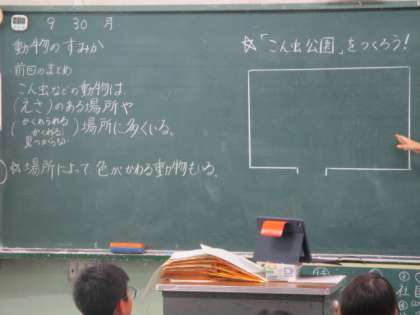 9 30 月
動物のすみか
☆「こん虫公園」をつくろう!
前回のまとめ
こん虫などの動物は、
(えさ)のある場所や
(かくれられる
かくれる
見つからない)場所に多くいる。
☆場所によって色がかわる動物もいる。